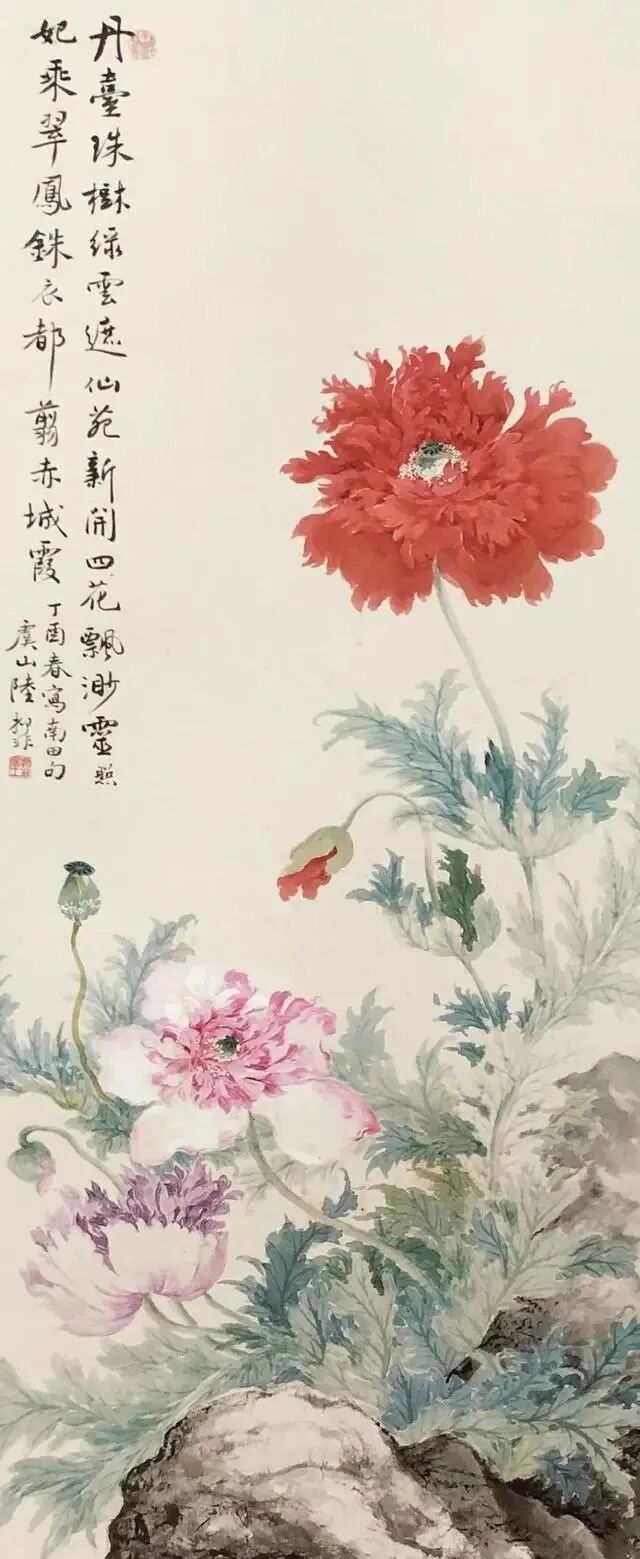 丹臺珠樹綠雲遮仙苑新開四花飄渺靈照
妃乘翠鳳銖衣都剪赤城霞
丁酉春寫南田句
虞山陸抑非